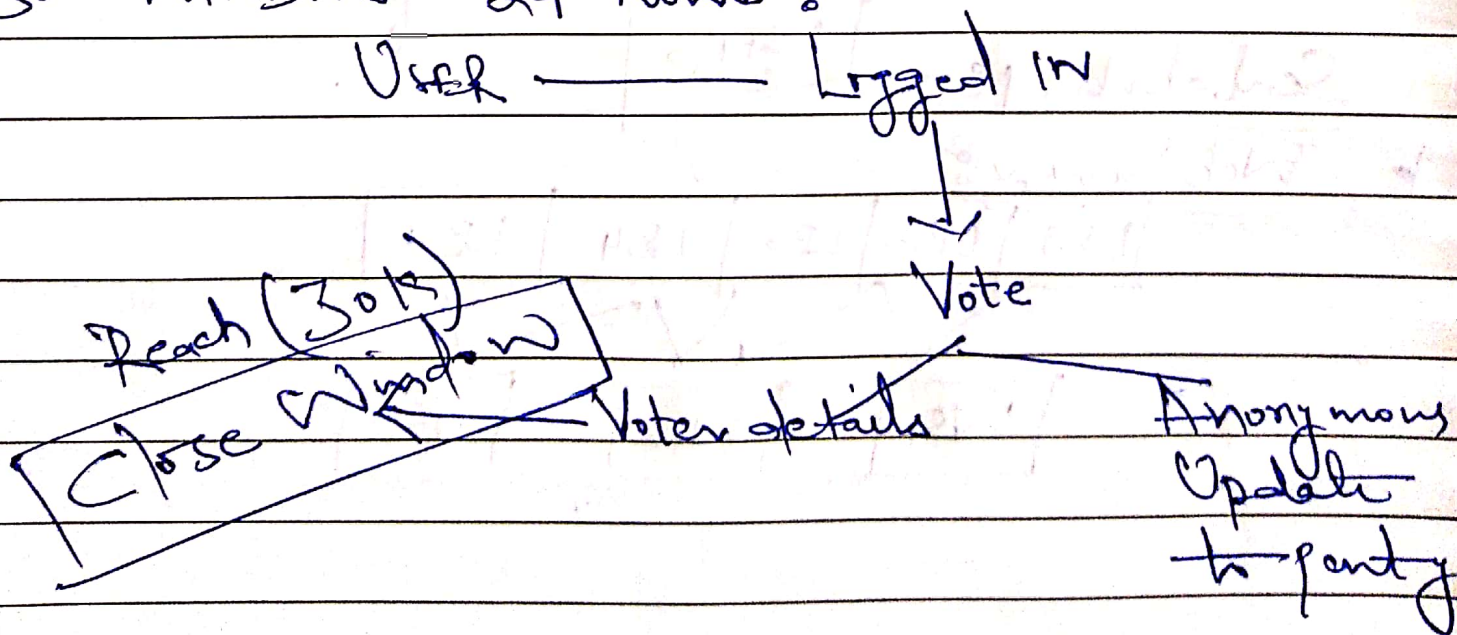 User Logged IN
Vote
Reach
Close Window
Voter details
Anonymous
Update
to party